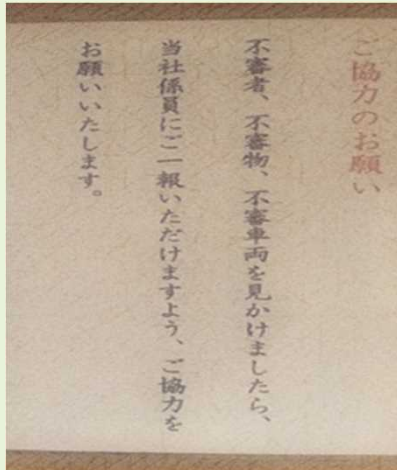 ご協力のお願い
不審者、不審物、不審車両を見かけましたら、
当社係員にご一報いただけますよう、ご協力を
お願いいたします。